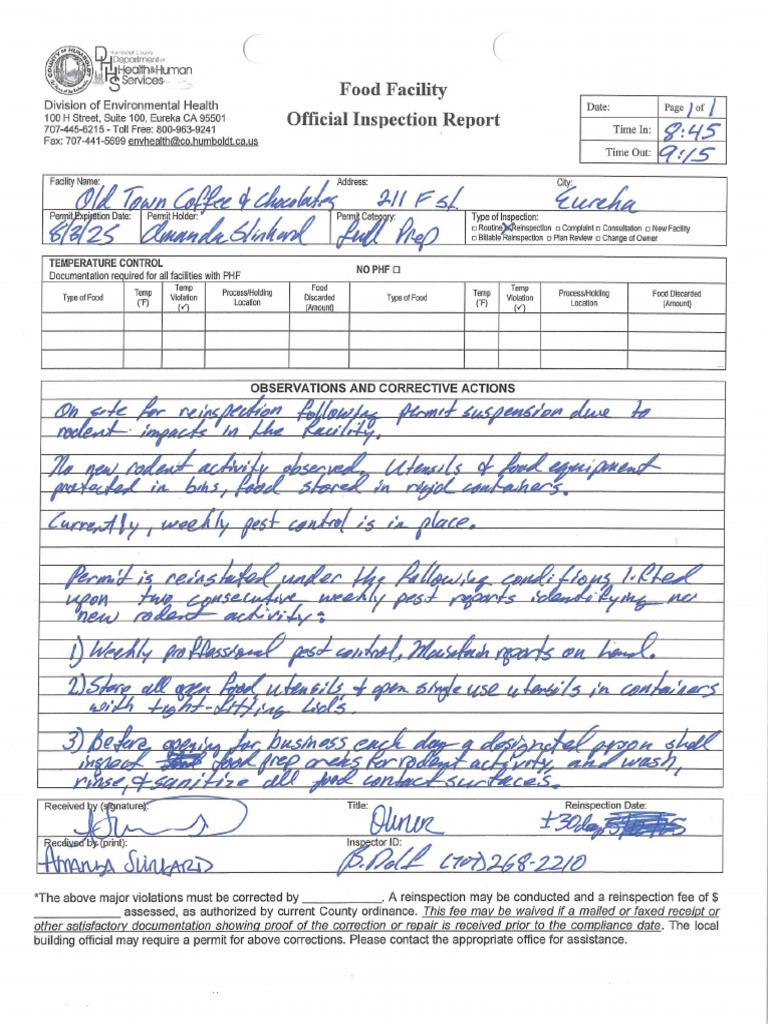 COUNTY OF HUMBOLDT
DHHS
Humboldt County
Department of
Health & Human
Services
Division of Environmental Health
100 H Street, Suite 100, Eureka CA 95501
707-445-6215 - Toll Free: 800-963-9241
Fax: 707-441-5699 envhealth@co.humboldt.ca.us
Food Facility
Official Inspection Report
Date: Page 1 of 1
Time In: 8:45
Time Out: 9:15
Facility Name: Old Town Coffee & Chocolates Address: 211 F St. City: Eureka
Permit Expiration Date: 8/3/25 Permit Holder: Amanda Slinkard Permit Category: Full Prep
Type of Inspection:
□ Routine X Reinspection □ Complaint □ Consultation □ New Facility
□ Billable Reinspection □ Plan Review □ Change of Owner
TEMPERATURE CONTROL
Documentation required for all facilities with PHF
NO PHF □
Type of Food Temp (°F) Temp Violation (✓) Process/Holding Location Food Discarded (Amount) Type of Food Temp (°F) Temp Violation (✓) Process/Holding Location Food Discarded (Amount)
OBSERVATIONS AND CORRECTIVE ACTIONS
On site for reinspection following permit suspension due to
rodent impacts in the facility.
No new rodent activity observed. Utensils & food equipment
protected in bins, food stored in rigid containers.
Currently, weekly pest control is in place.
Permit is reinstated under the following conditions lifted
upon two consecutive weekly pest reports identifying no
new rodent activity:
1) Weekly proffessional pest control. Maintain reports on hand.
2) Store all open food utensils & open single use utensils in containers
with tight-fitting lids.
3) Before opening for business each day a designated person shall
inspect food prep areas for rodent activity, and wash,
rinse, & sanitize all food contact surfaces.
Received by (signature): Title: Owner Reinspection Date: ±30 days
Received by (print): AMANDA SLINKARD Inspector ID: B. Dolf (707) 268-2210
*The above major violations must be corrected by ___________. A reinspection may be conducted and a reinspection fee of $
_____________ assessed, as authorized by current County ordinance. This fee may be waived if a mailed or faxed receipt or
other satisfactory documentation showing proof of the correction or repair is received prior to the compliance date. The local
building official may require a permit for above corrections. Please contact the appropriate office for assistance.